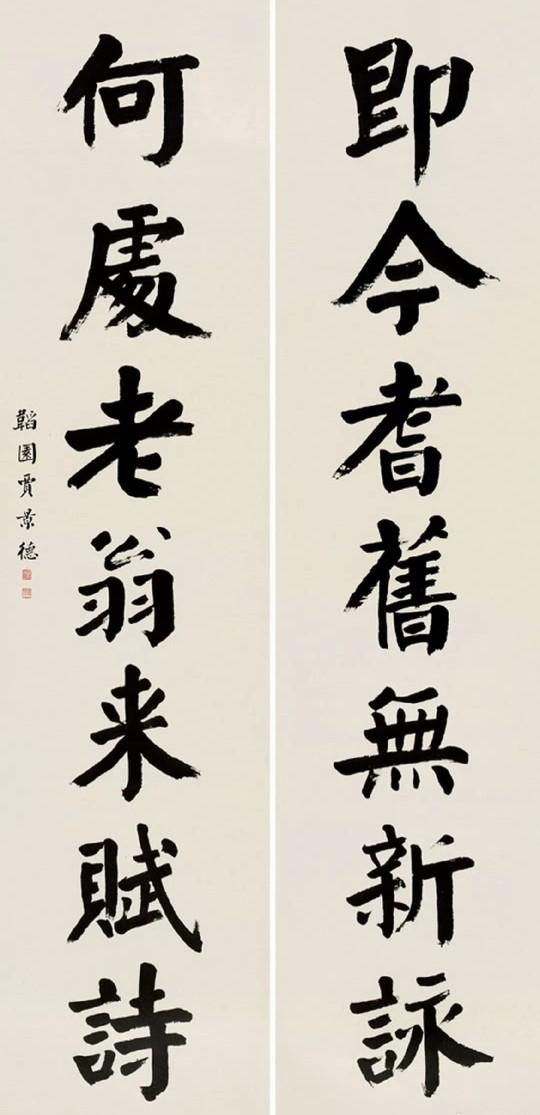 即今耆舊無新詠
何處老翁来賦詩
韜園賈景德